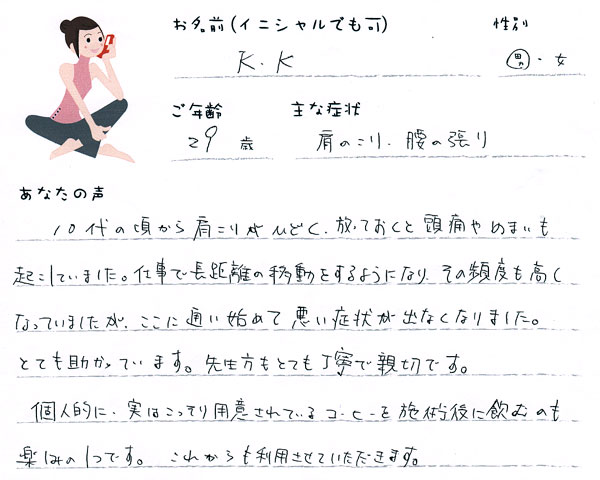 お名前(イニシャルでも可) 性別
K.K 男・女
ご年齢 主な症状
29 歳 肩のこり、腰の張り
あなたの声
10代の頃から肩こりがひどく、放っておくと頭痛やめまいも
起こしていました。仕事で長距離の移動をするようになり、その頻度も高く
なっていましたが、ここに通い始めて悪い症状が出なくなりました。
とても助かっています。先生方もとても丁寧で親切です。
個人的に、実はこっそり用意されているコーヒーを施術後に飲むのも
楽しみの1つです。これからも利用させていただきます。